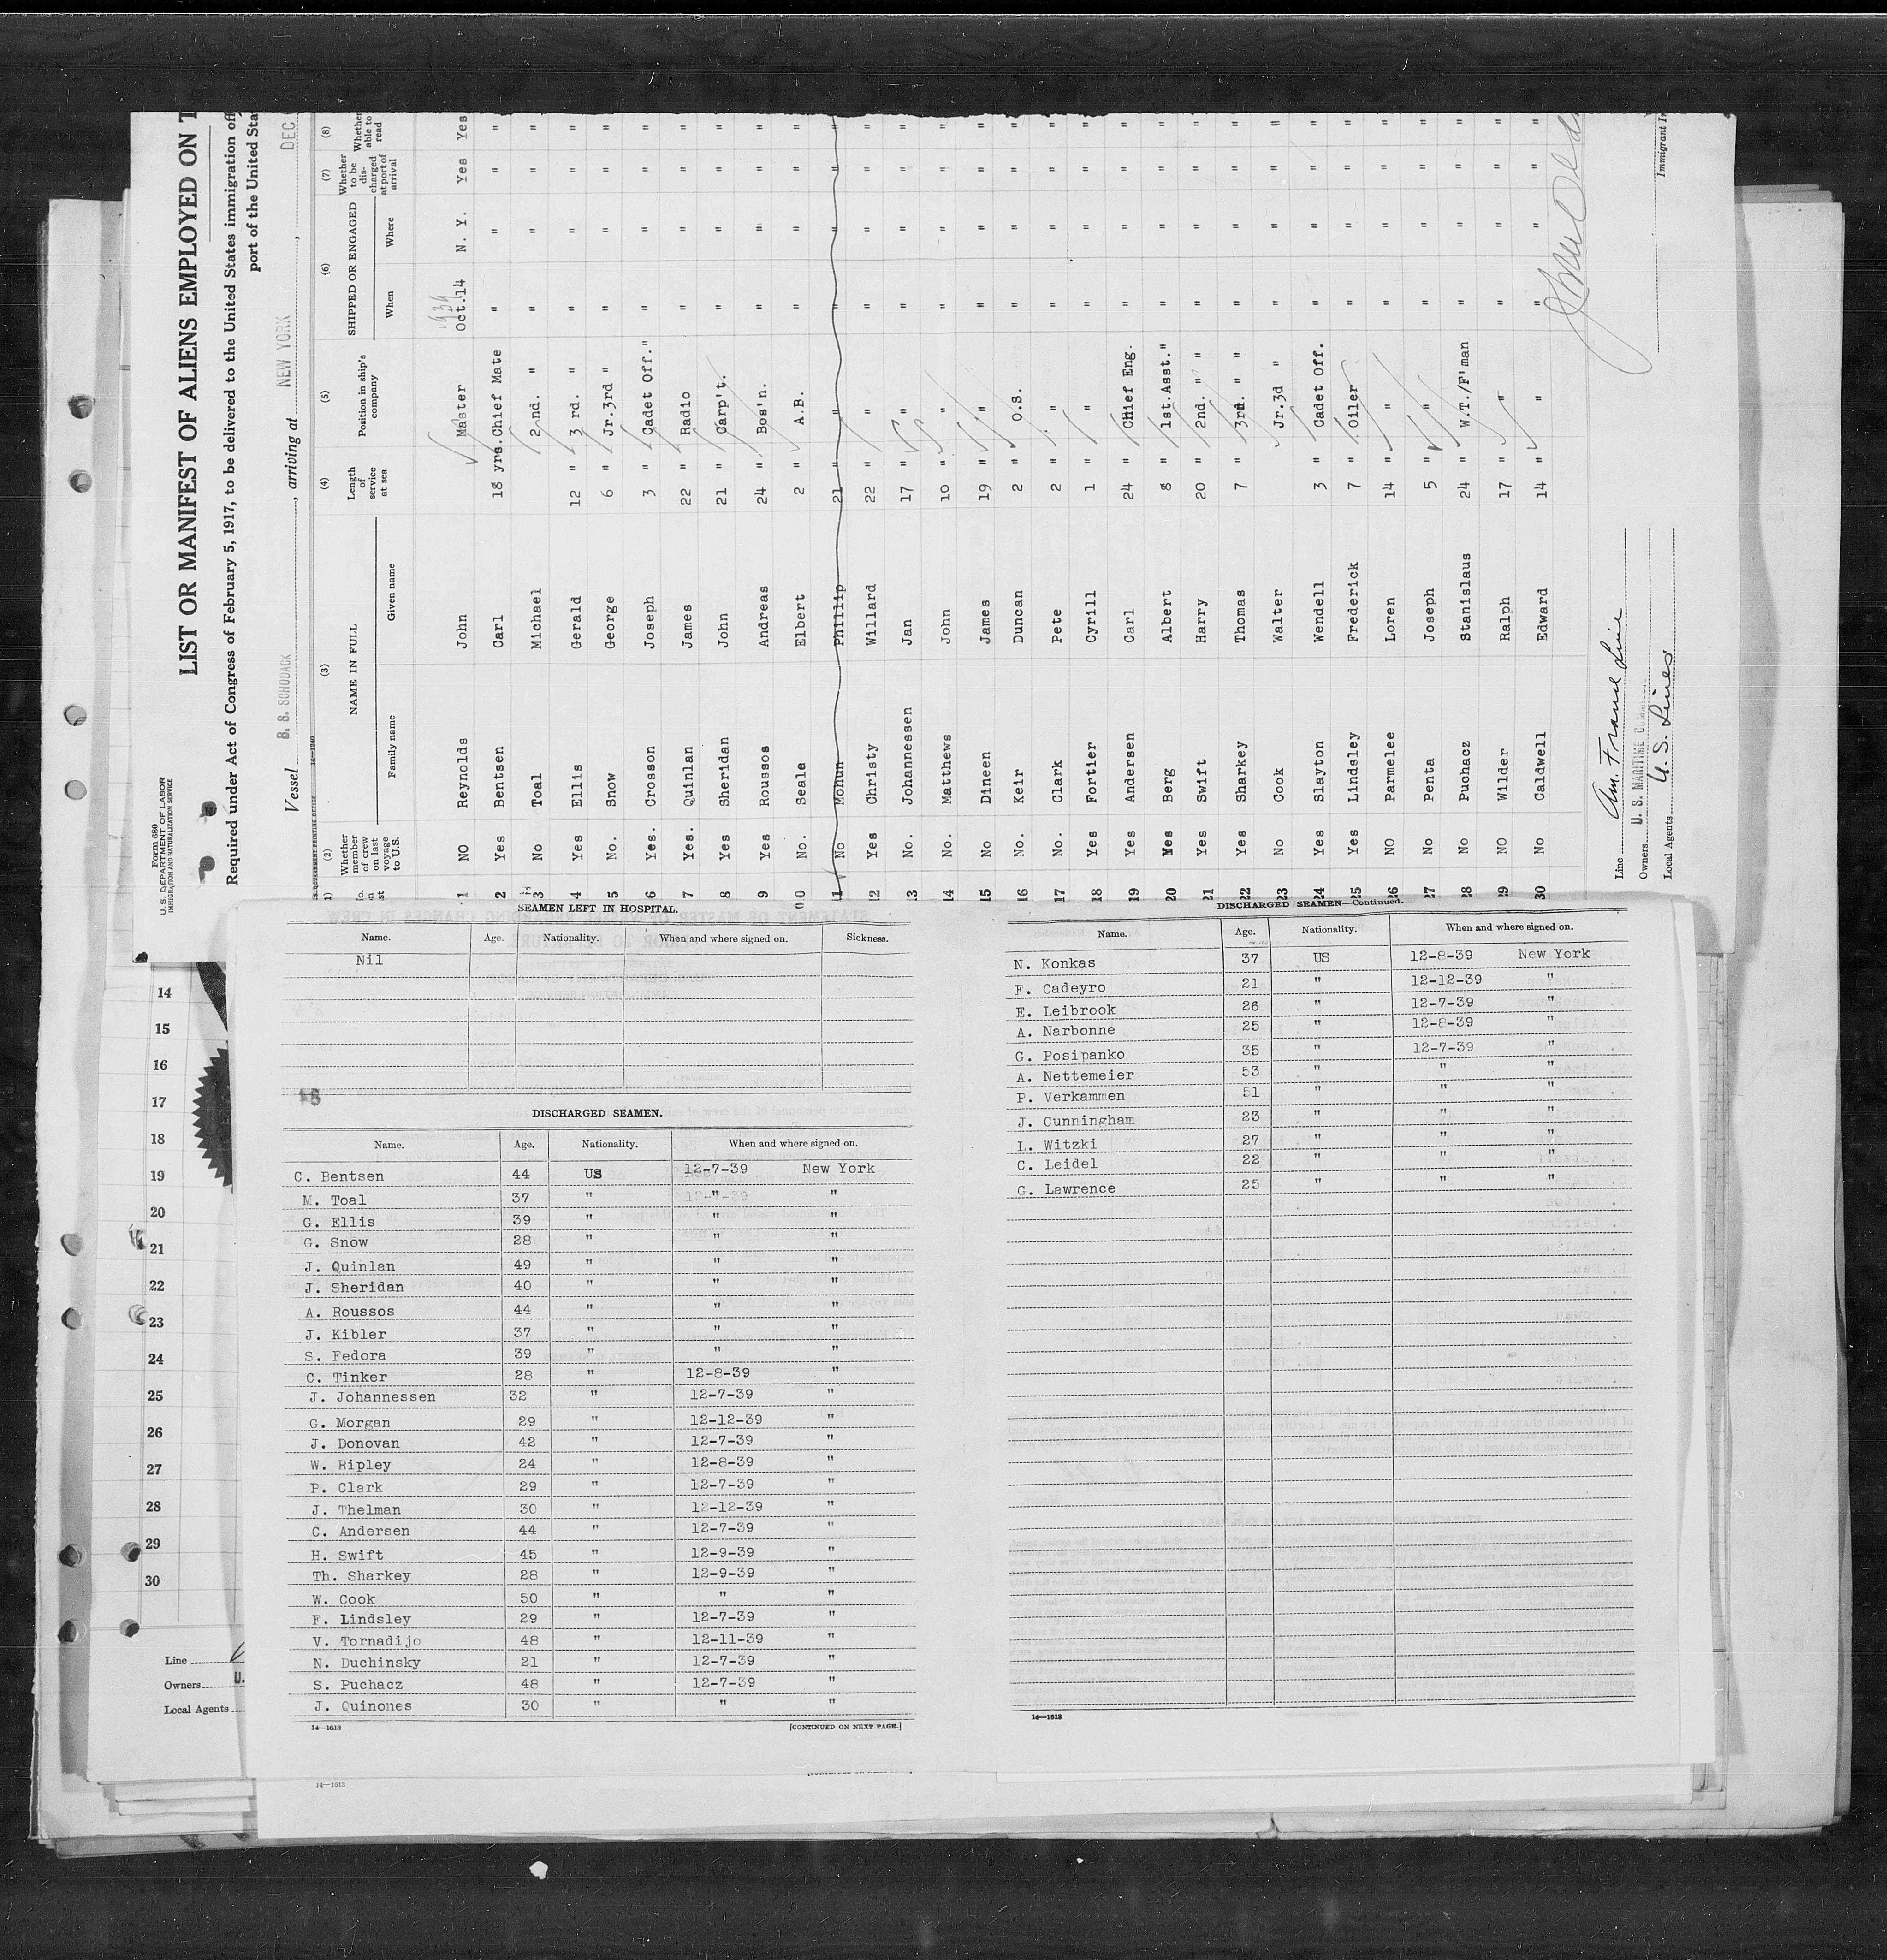 Form 680
U. S. DEPARTMENT OF LABOR
IMMIGRATION AND NATURALIZATION SERVICE
LIST OR MANIFEST OF ALIENS EMPLOYED ON T
Required under Act of Congress of February 5, 1917, to be delivered to the United States immigration off
port of the United Sta
Vessel S. S. SCHODACK, arriving at NEW YORK, DEC
(2) (3) (4) (5) (6) (7) (8)
Whether member of crew on last voyage to U.S. NAME IN FULL Family name Given name Length of service at sea Position in ship's company SHIPPED OR ENGAGED When Where Whether to be discharged at port of arrival Whether able to read
1939
1 NO Reynolds John Master Oct.14 N. Y. Yes Yes
2 Yes Bentsen Carl 18 yrs. Chief Mate " " " "
3 No Toal Michael 2nd. " " " " "
4 Yes Ellis Gerald 12 " 3 rd. " " " " "
5 No. Snow George 6 " Jr.3rd " " " " "
6 Yes. Crosson Joseph 3 " Cadet Off." " " " "
7 Yes. Quinlan James 22 " Radio " " " "
8 Yes Sheridan John 21 " Carp't. " " " "
9 Yes Roussos Andreas 24 " Bos'n. " " " "
10 No. Seale Elbert 2 " A.B. " " " "
11 No Mohun Phillip 21 " " " " " "
12 Yes Christy Willard 22 " " " " " "
13 No. Johannessen Jan 17 " " " " " "
14 No. Matthews John 10 " " " " " "
15 No Dineen James 19 " " " " " "
16 No. Keir Duncan 2 " O.S. " " " "
17 No. Clark Pete 2 " " " " " "
18 Yes Fortier Cyrill 1 " " " " " "
19 Yes Andersen Carl 24 " Chief Eng. " " " "
20 Yes Berg Albert 8 " 1st.Asst." " " " "
21 Yes Swift Harry 20 " 2nd. " " " " " "
22 Yes Sharkey Thomas 7 " 3rd. " " " " " "
23 No Cook Walter Jr.3d " " " " "
24 Yes Slayton Wendell 3 " Cadet Off. " " " "
25 Yes Lindsley Frederick 7 " Oiler " " " "
26 NO Parmelee Loren 14 " " " " " "
27 No Penta Joseph 5 " " " " " "
28 No Puchacz Stanislaus 24 " W.T./F'man " " " "
29 NO Wilder Ralph 17 " " " " " "
30 No Caldwell Edward 14 " " " " " "
Line Am. France Line
Owners U. S. MARITIME
Local Agents U. S. Lines
Immigrant
SEAMEN LEFT IN HOSPITAL.
Name. Age. Nationality. When and where signed on. Sickness.
Nil
DISCHARGED SEAMEN.
Name. Age. Nationality. When and where signed on.
C. Bentsen 44 US 12-7-39 New York
M. Toal 37 " " "
G. Ellis 39 " " "
G. Snow 28 " " "
J. Quinlan 49 " " "
J. Sheridan 40 " " "
A. Roussos 44 " " "
J. Kibler 37 " " "
S. Fedora 39 " " "
C. Tinker 28 " 12-8-39 "
J. Johannessen 32 " 12-7-39 "
G. Morgan 29 " 12-12-39 "
J. Donovan 42 " 12-7-39 "
W. Ripley 24 " 12-8-39 "
P. Clark 29 " 12-7-39 "
J. Thelman 30 " 12-12-39 "
C. Andersen 44 " 12-7-39 "
H. Swift 45 " 12-9-39 "
Th. Sharkey 28 " 12-9-39 "
W. Cook 50 " " "
F. Lindsley 29 " 12-7-39 "
V. Tornadijo 48 " 12-11-39 "
N. Duchinsky 21 " 12-7-39 "
S. Puchacz 48 " 12-7-39 "
J. Quinones 30 " " "
14—1613 [CONTINUED ON NEXT PAGE.]
DISCHARGED SEAMEN—Continued.
Name. Age. Nationality. When and where signed on.
N. Konkas 37 US 12-8-39 New York
F. Cadeyro 21 " 12-12-39 "
E. Leibrook 26 " 12-7-39 "
A. Narbonne 25 " 12-8-39 "
G. Posipanko 35 " 12-7-39 "
A. Nettemeier 53 " " "
P. Verkammen 51 " " "
J. Cunningham 23 " " "
L. Witzki 27 " " "
C. Leidel 22 " " "
G. Lawrence 25 " " "
14—1613
14
15
16
17
18
19
20
21
22
23
24
25
26
27
28
29
30
Line
Owners U.
Local Agents
14—1613